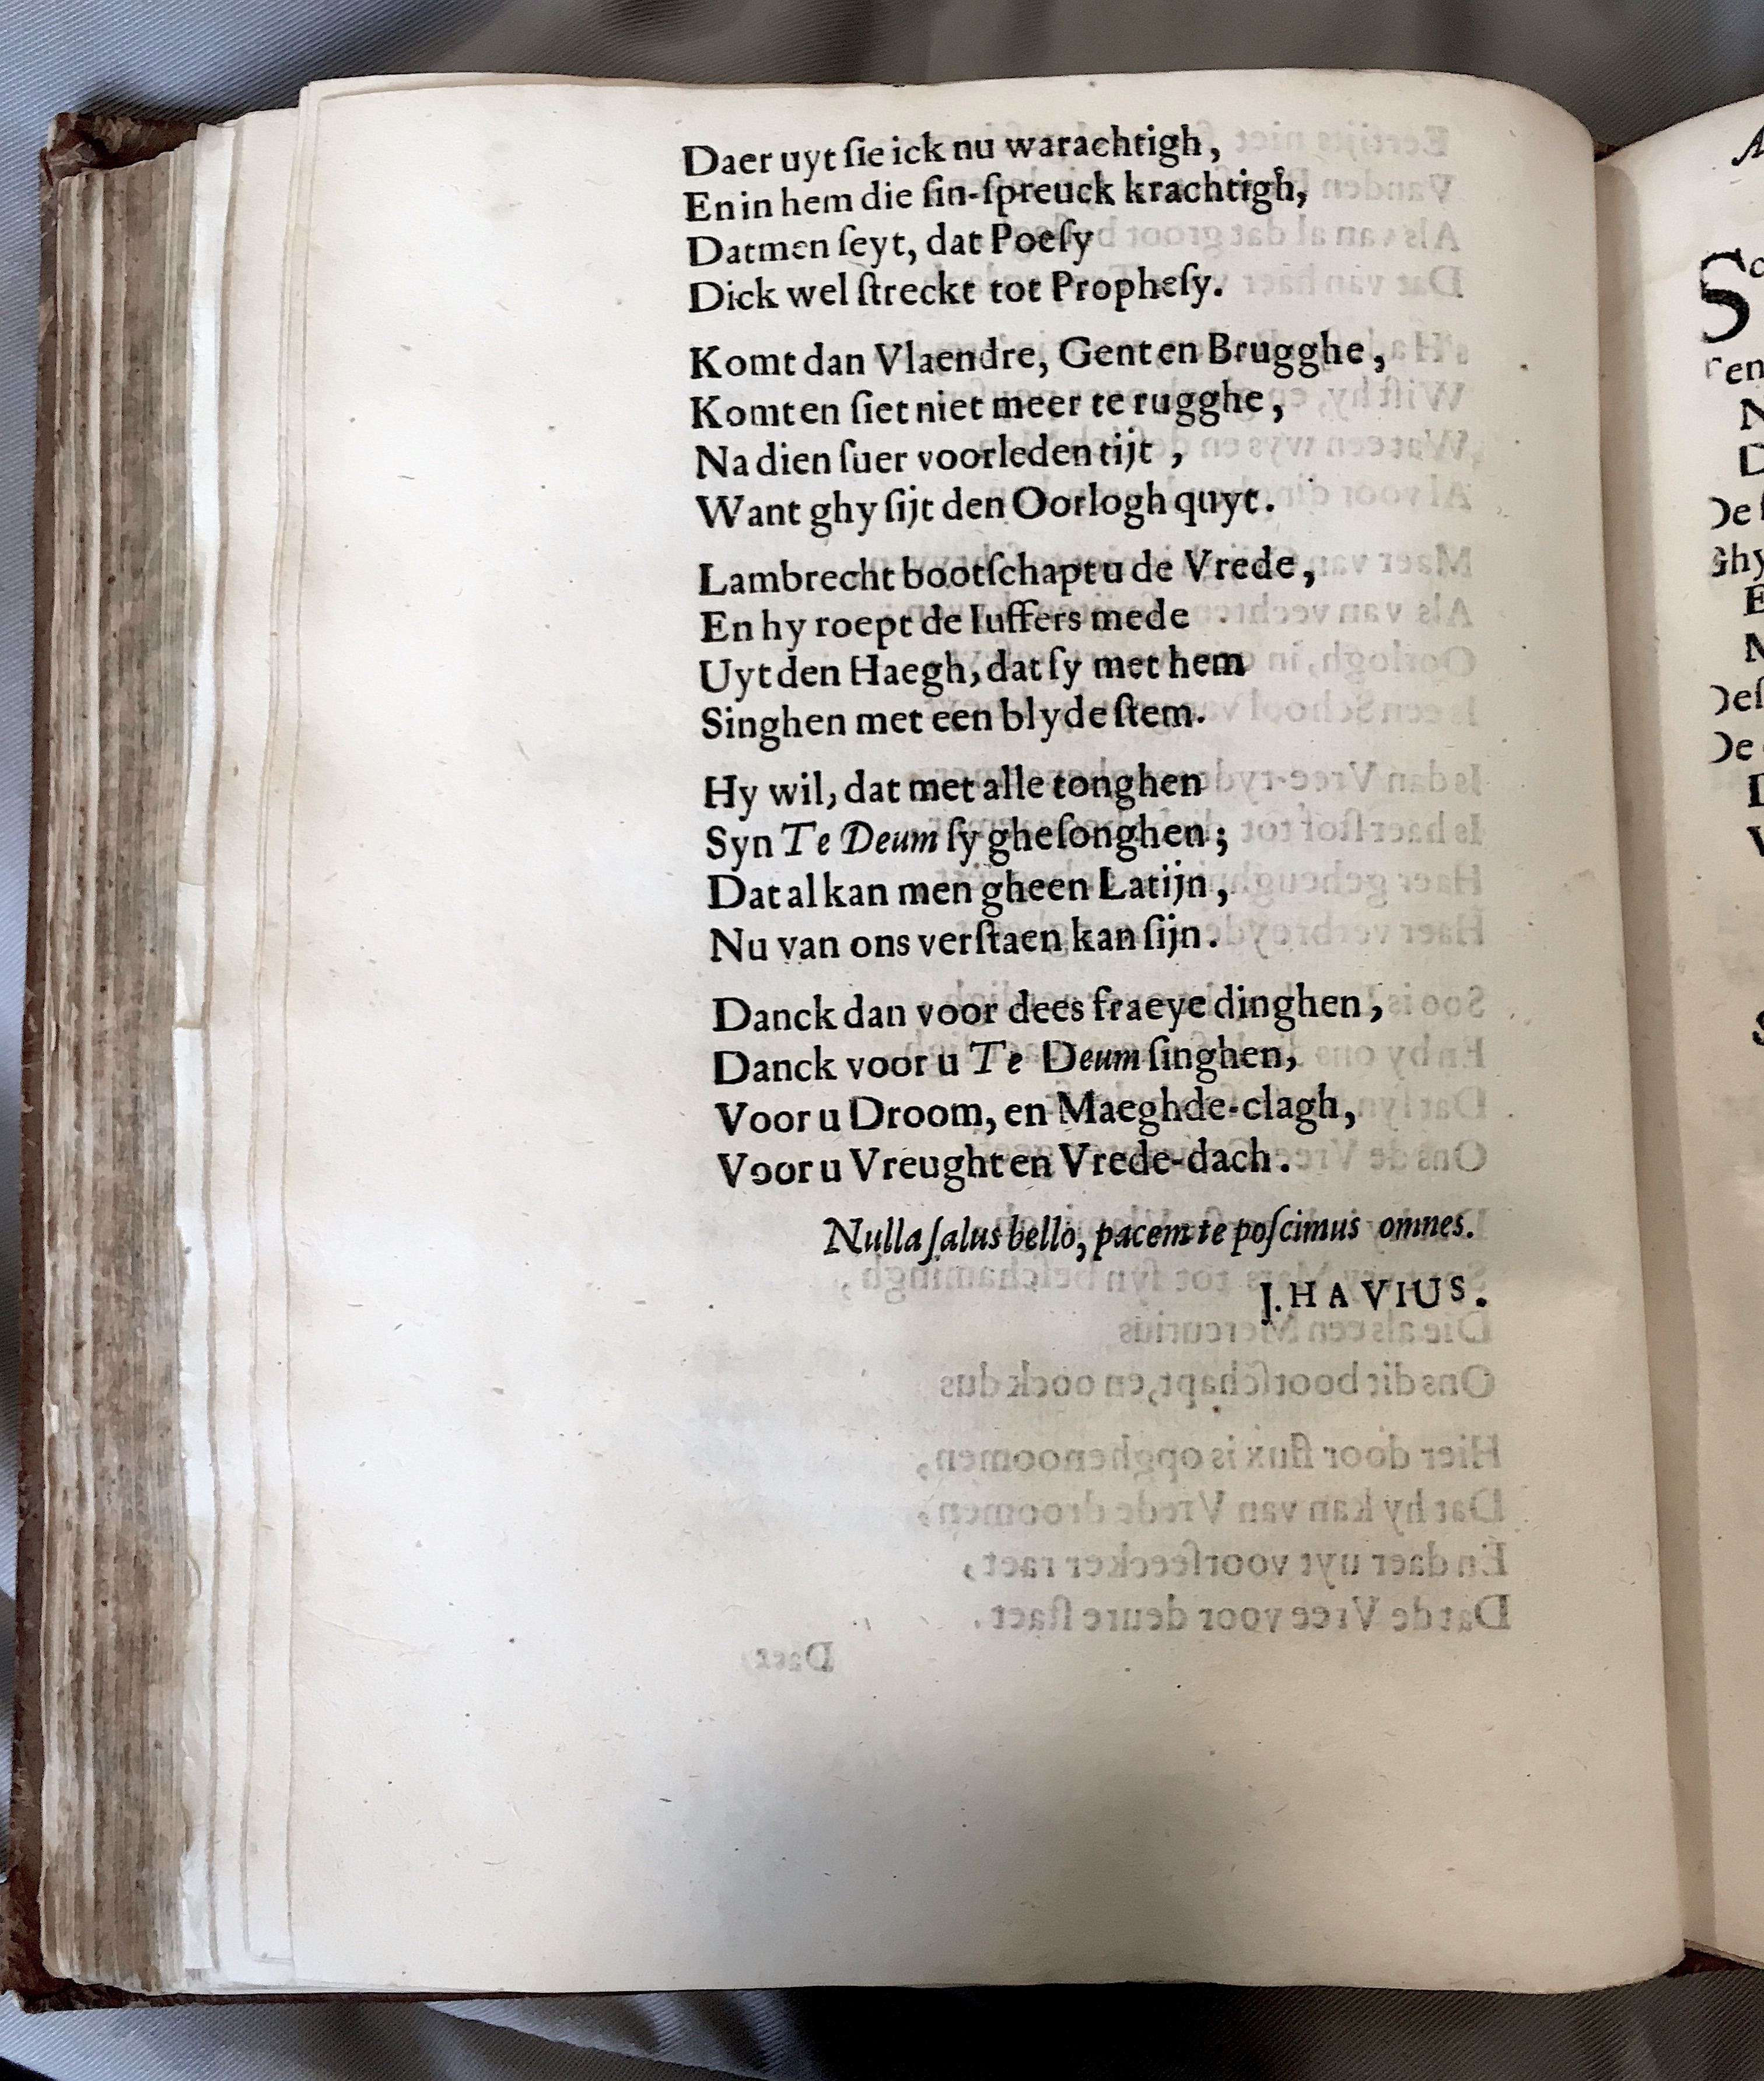 Daer uyt ſie ick nu warachtigh,
En in hem die ſin-ſpreuck krachtigh,
Datmen ſeyt, dat Poeſy
Dick wel ſtreckt tot Propheſy.
Komt dan Vlaendre, Gent en Brugghe,
Komt en ſiet niet meer te rugghe,
Na dien ſuer voorleden tijt,
Want ghy ſijt den Oorlogh quyt.
Lambrecht bootſchapt u de Vrede,
En hy roept de Iuffers mede
Uyt den Haegh, dat ſy met hem
Singhen met een blyde ſtem.
Hy wil, dat met alle tonghen
Syn Te Deum ſy gheſonghen;
Dat al kan men gheen Latijn,
Nu van ons verſtaen kan ſijn.
Danck dan voor dees fraeye dinghen,
Danck voor u Te Deum ſinghen,
Voor u Droom, en Maeghde-clagh,
Voor u Vreught en Vrede-dach.
Nulla ſalus bello, pacem te poſcimus omnes.
J. HAVIUS.